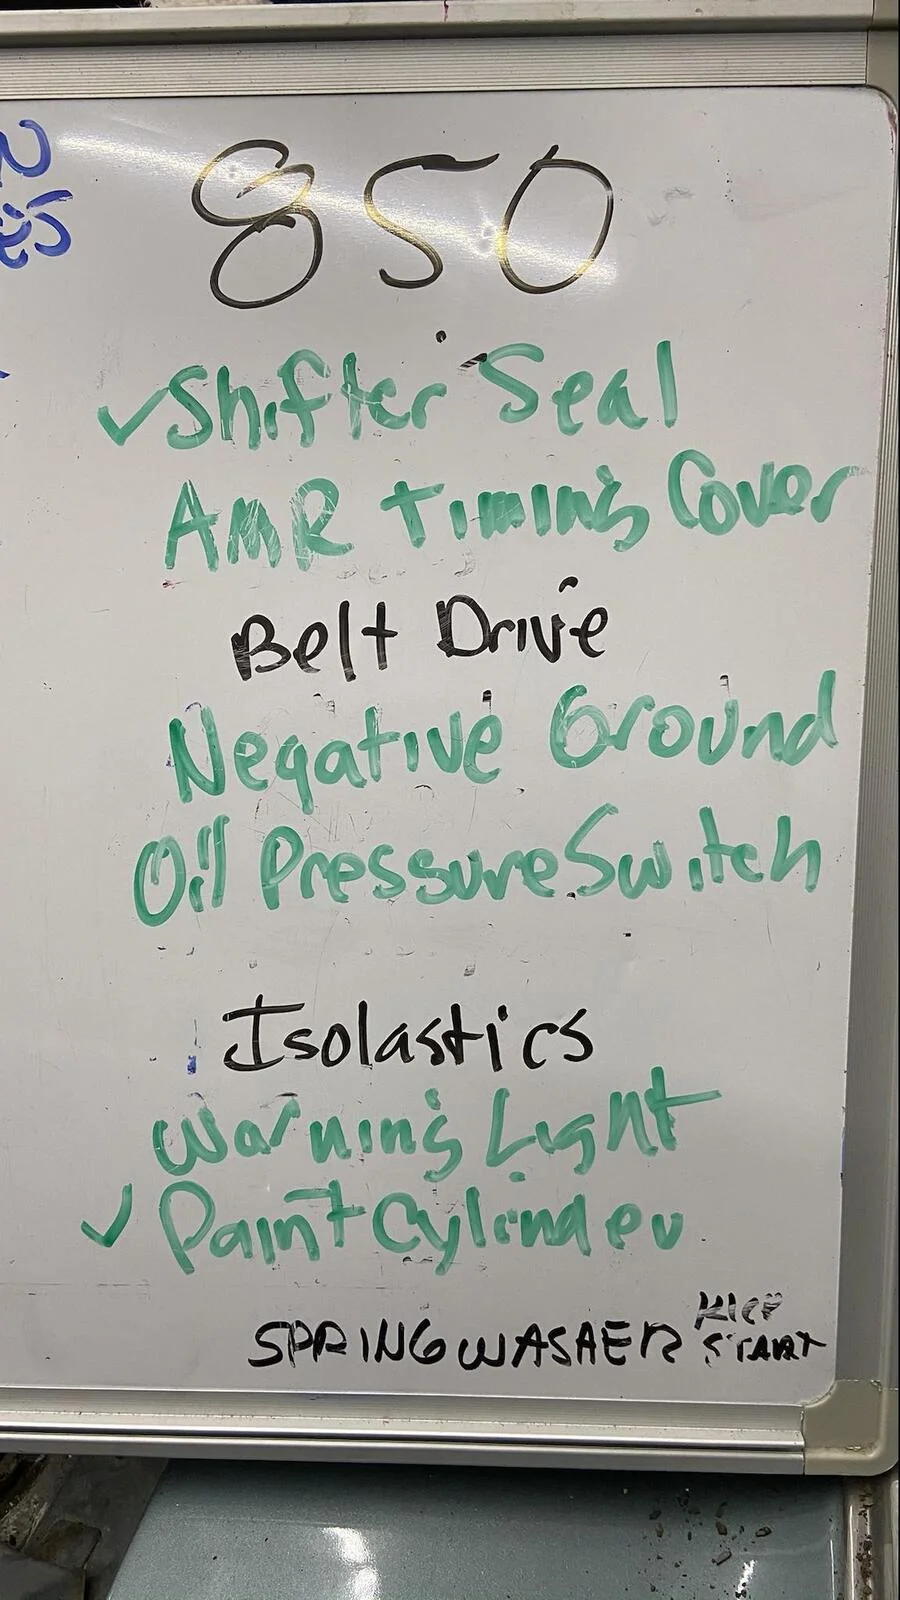 850
✓Shifter Seal
AMR Timing Cover
Belt Drive
Negative Ground
Oil Pressure Switch
Isolastics
Warning Light
✓ Paint Cylinder
SPRING WASHER KICK
START